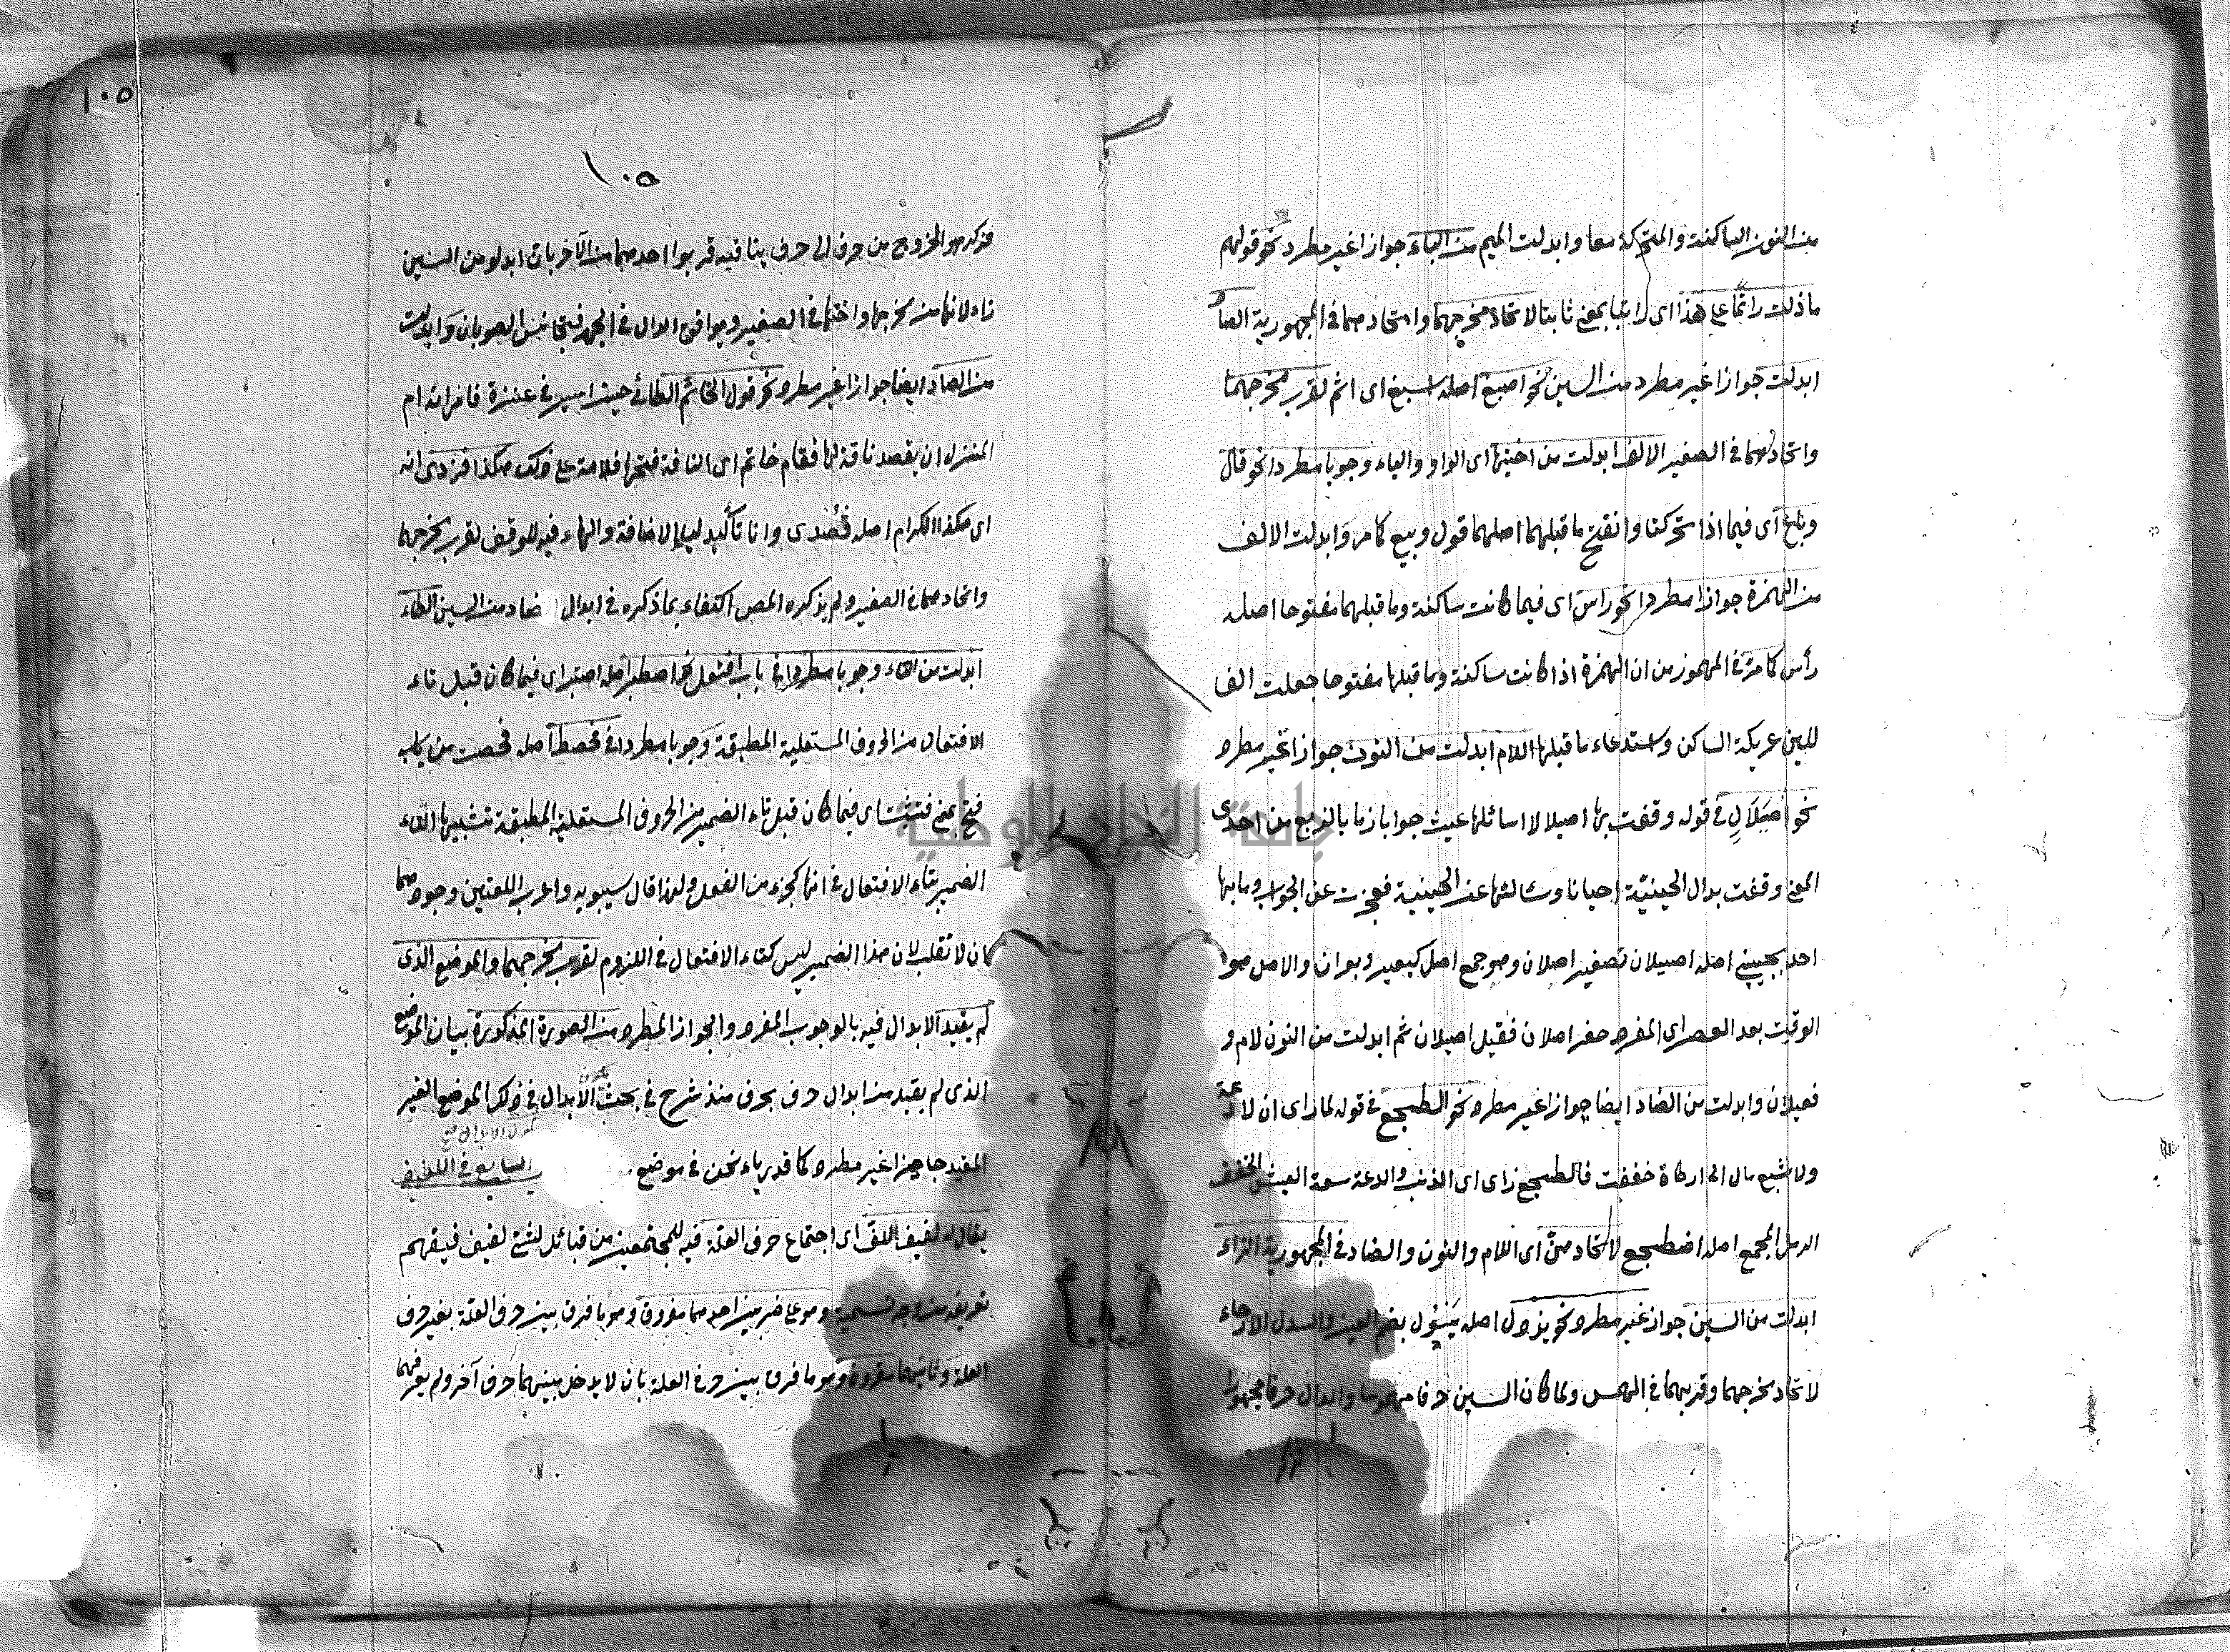 من النون الساكنة والمتحركة معا وابدلت الميم من الباء جوازا غير مطرد نحو قولهم
ما ذلت راتما على هذا اى راتبا بمعنى ثابتا لاتحاد مخرجهما واتحادهما فى المجهورية الصاد
ابدلت جوازا غير مطرد من السين نحو اصبغ اصله اسبغ اى اتم لقرب مخرجهما
واتحادهما فى الصفير الالف ابدلت من اختيها اى الواو والياء وجوبا مطردا نحو قال
وباع اى فيما اذا تحركتا وانفتح ما قبلهما اصلهما قول وبيع كما مر وابدلت الالف
من الهمزة جوازا مطردا نحو راس اى فيما كانت ساكنة وما قبلها مفتوحا اصله
رأس كما مر فى المهموز من ان الهمزة اذا كانت ساكنة وما قبلها مفتوحا جعلت الفا
للين عريكة الساكن واستدعاء ما قبلها اللام ابدلت من النون جوازا غير مطرد
نحو اصيلال فى قوله وقفت بها اصيلالا اسائلها عيت جوابا وما بالربع من احدى
المعنى وقفت بدال الحينية احيانا وسائلتها عن الحينية فعجزت عن الجواب وما بها
احد يجيبنى اصله اصيلان تصغير اصلان وهو جمع اصل كبعير وبعران والاصل هو
الوقت بعد العصر اى المفرد صغر اصلان فقيل اصيلان ثم ابدلت من النون لام و
فعيلان وابدلت من الضاد ايضا جوازا غير مطرد نحو الطجع فى قوله لما راى ان لا دعة
ولا شبع مال الى ارطاة حقفت فالطجع راى اى الذئب والدعة سعة العيش الحقف
الرمل المجمع اصله اضطجع لاتحادهن اى اللام والنون والضاد فى المجهورية الزاء
ابدلت من السين جواز غير مطرد نحو يزدل اصله يسدل بضم العين والسدل الارخاء
لاتحاد مخرجهما وقربهما فى الهمس ولما كان السين حرفا مهموسا والدال حرفا مجهورا
١٠٥
١٠٥
فكرهوا الخروج من حرف الى حرف ينافيه قربوا احدهما من الآخر بان ابدلوا من السين
زاء لانها من مخرجها واختها فى الصفير ويوافق الدال فى الجهر فيتجانس الصوتان وابدلت
من الصاد ايضا جوازا غير مطرد نحو قول الحاتم الطائى حيث اسير فى عنزة فامرته ام
المنزل ان يفصد ناقة لها فقام حاتم اى الناقة فنحرها فلامته على ذلك هكذا فزدى انه
اى هكذا الكرام اصله فصدى وانا تأكيد لياء الاضافة والهاء فيه للوقف لقرب مخرجهما
واتحادهما فى الصفير ولم يذكره المص اكتفاء بما ذكره فى ابدال الصاد من السين الطاء
ابدلت من التاء وجوبا مطردا فى باب افتعل نحو اصطبر اصله اصتبر اى فيما كان قبل تاء
الافتعال من الحروف المستعلية المطبقة وجوبا مطردا فى فحصط اصله فحصت من باب
فتح بمعنى فتشت اى فيما كان قبل تاء الضمير من الحروف المستعلية المطبقة تشبيها لتاء
الضمير بتاء الافتعال فى انها كجزء من الفعل ولهذا قال سيبويه واعرب اللغتين وجودهما
ان لا تقلب لان هذا الضمير ليس كتاء الافتعال فى اللزوم لقرب مخرجهما والموضع الذى
لم يقيد الابدال فيه بالوجوب المفرد والجواز المطرد من الصورة المذكورة بيان الموضع
الذى لم يقيد من ابدال حرف بحرف منذ شرع فى بحث الابدال فى ذلك الموضع الغير
المقيد جائزا غير مطرد كما قدر ياء نحن فى موضع السابع فى اللفيف
يقال له لفيف للف اى اجتماع حرف العلة فيه للمجتمعين من قبائل شتى لفيف فيفهم
تعريفه من وجه تسمية وهو على ضربين احدهما مفروق وهو ما فرق بين حرفى العلة بغير حرف
العلة وثانيهما مقرون وهو ما فرق بين حرفى العلة بان لا يدخل بينهما حرف آخر ولم يعرفهما
جامعة النجاح الوطنية